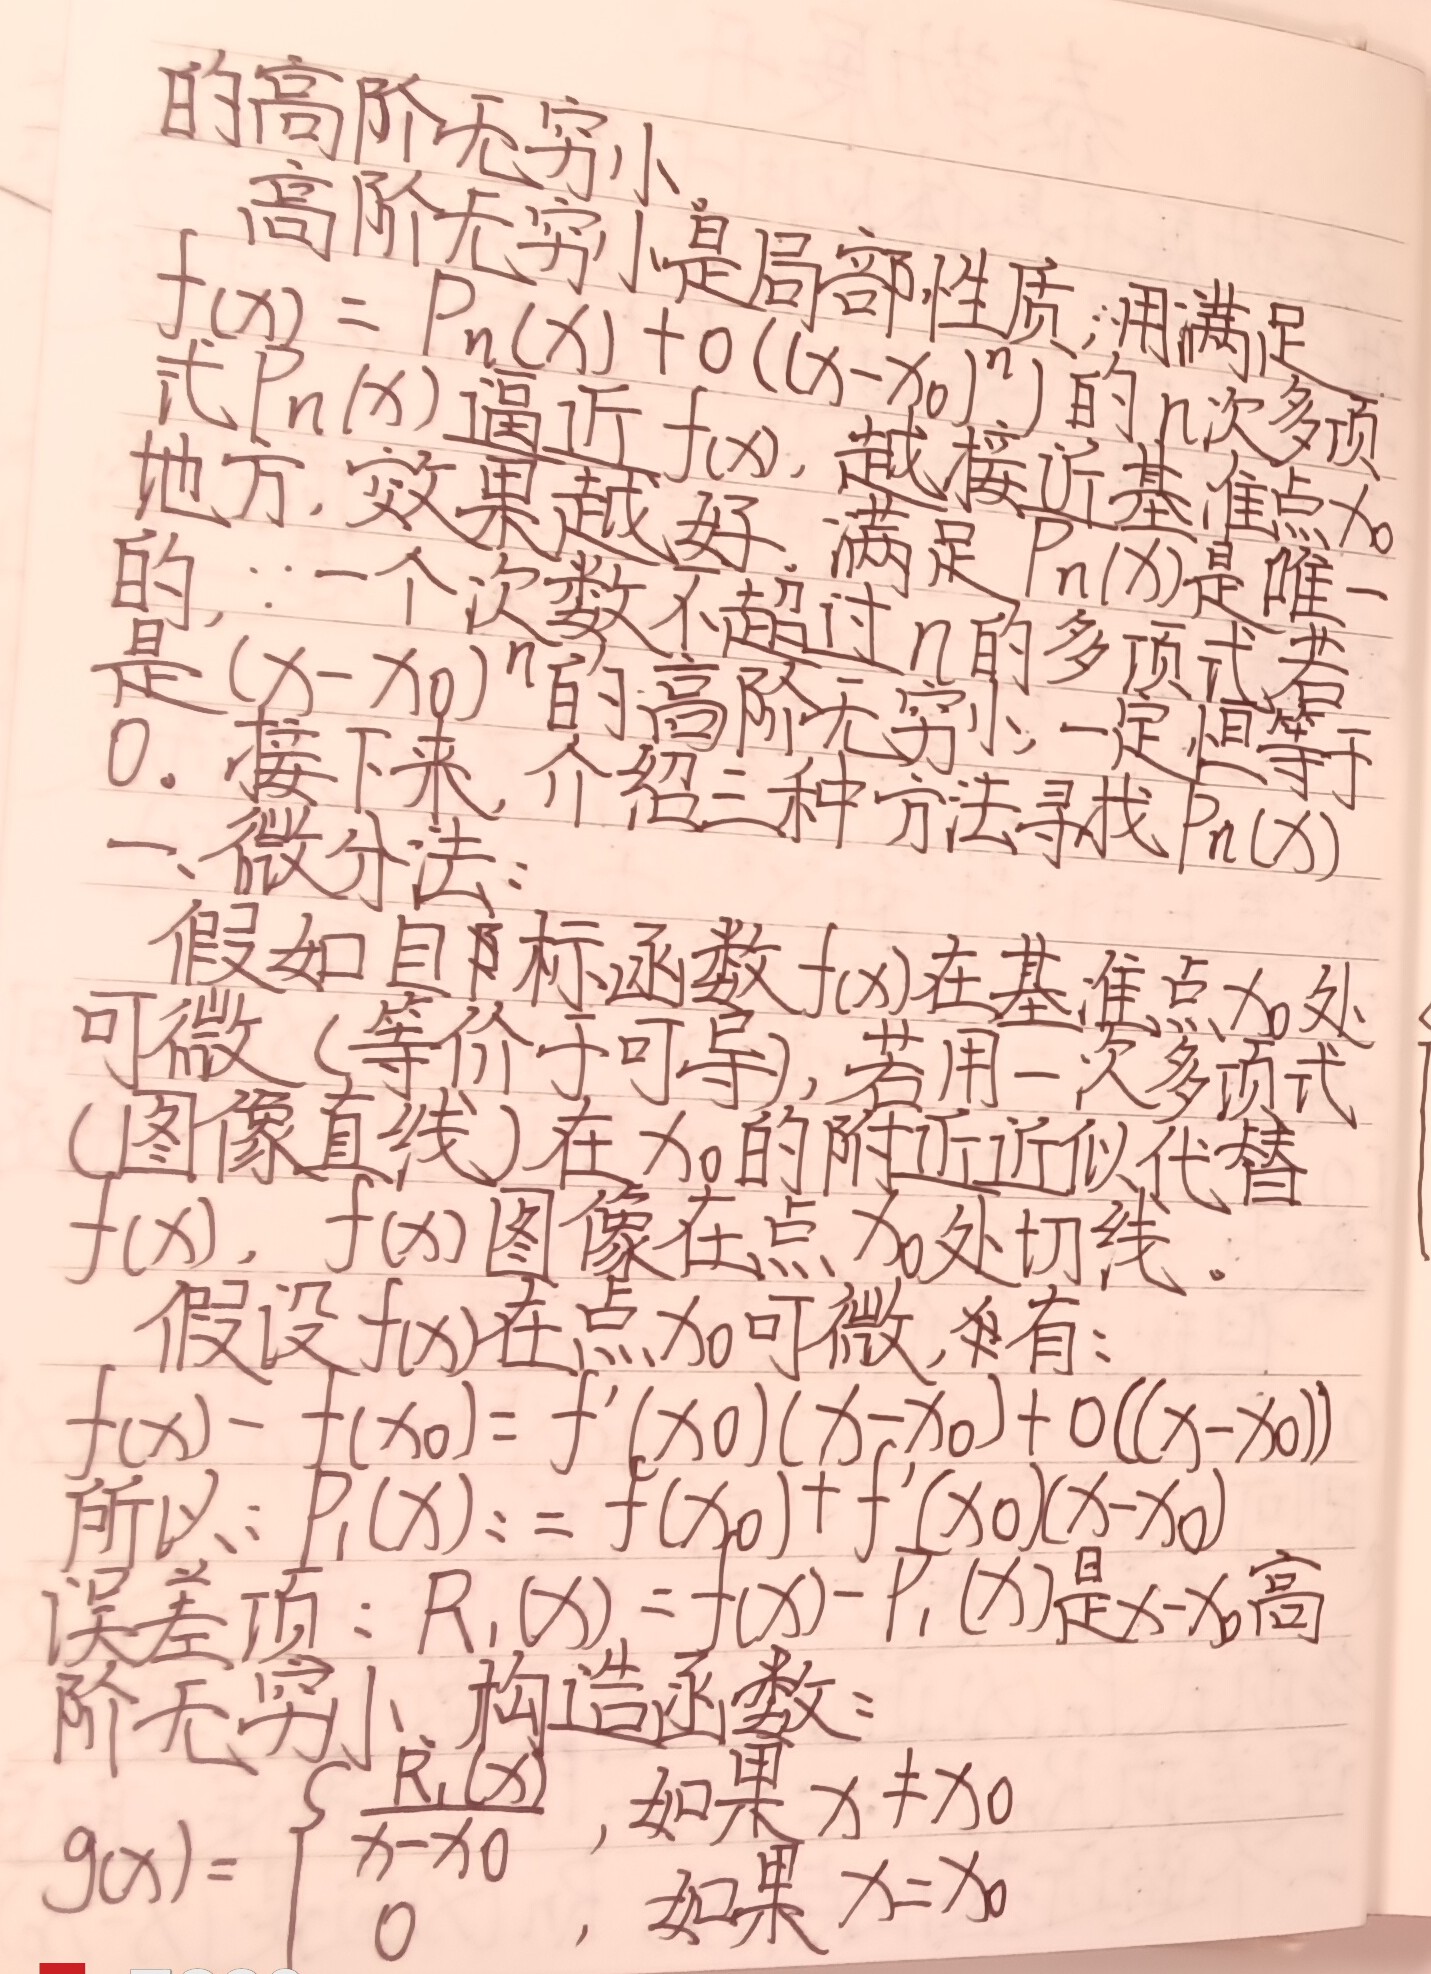 的高阶无穷小.
高阶无穷小是局部性质;用满足
f(x) = Pn(x) + o((x-x₀)ⁿ)的n次多项
式Pn(x)逼近f(x),越接近基准点x₀
地方,效果越好.满足Pn(x)是唯一
的,∵一个次数不超过n的多项式若
是(x-x₀)ⁿ的高阶无穷小,一定恒等于
0。接下来,介绍三种方法寻找Pn(x)
一、微分法:
假如目标函数f(x)在基准点x₀处
可微(等价于可导),若用一次多项式
(图像直线)在x₀的附近近似代替
f(x), f(x)图像在点x₀处切线.
假设f(x)在点x₀可微,有:
f(x)-f(x₀)=f'(x0)(x-x₀)+o((x-x₀))
所以:P₁(x):=f(x₀)+f'(x0)(x-x₀)
误差项:R₁(x)=f(x)-P₁(x)是x-x₀高
阶无穷小、构造函数:
g(x)= { R₁(x)/(x-x0) ,如果x≠x0
0 ,如果x=x₀